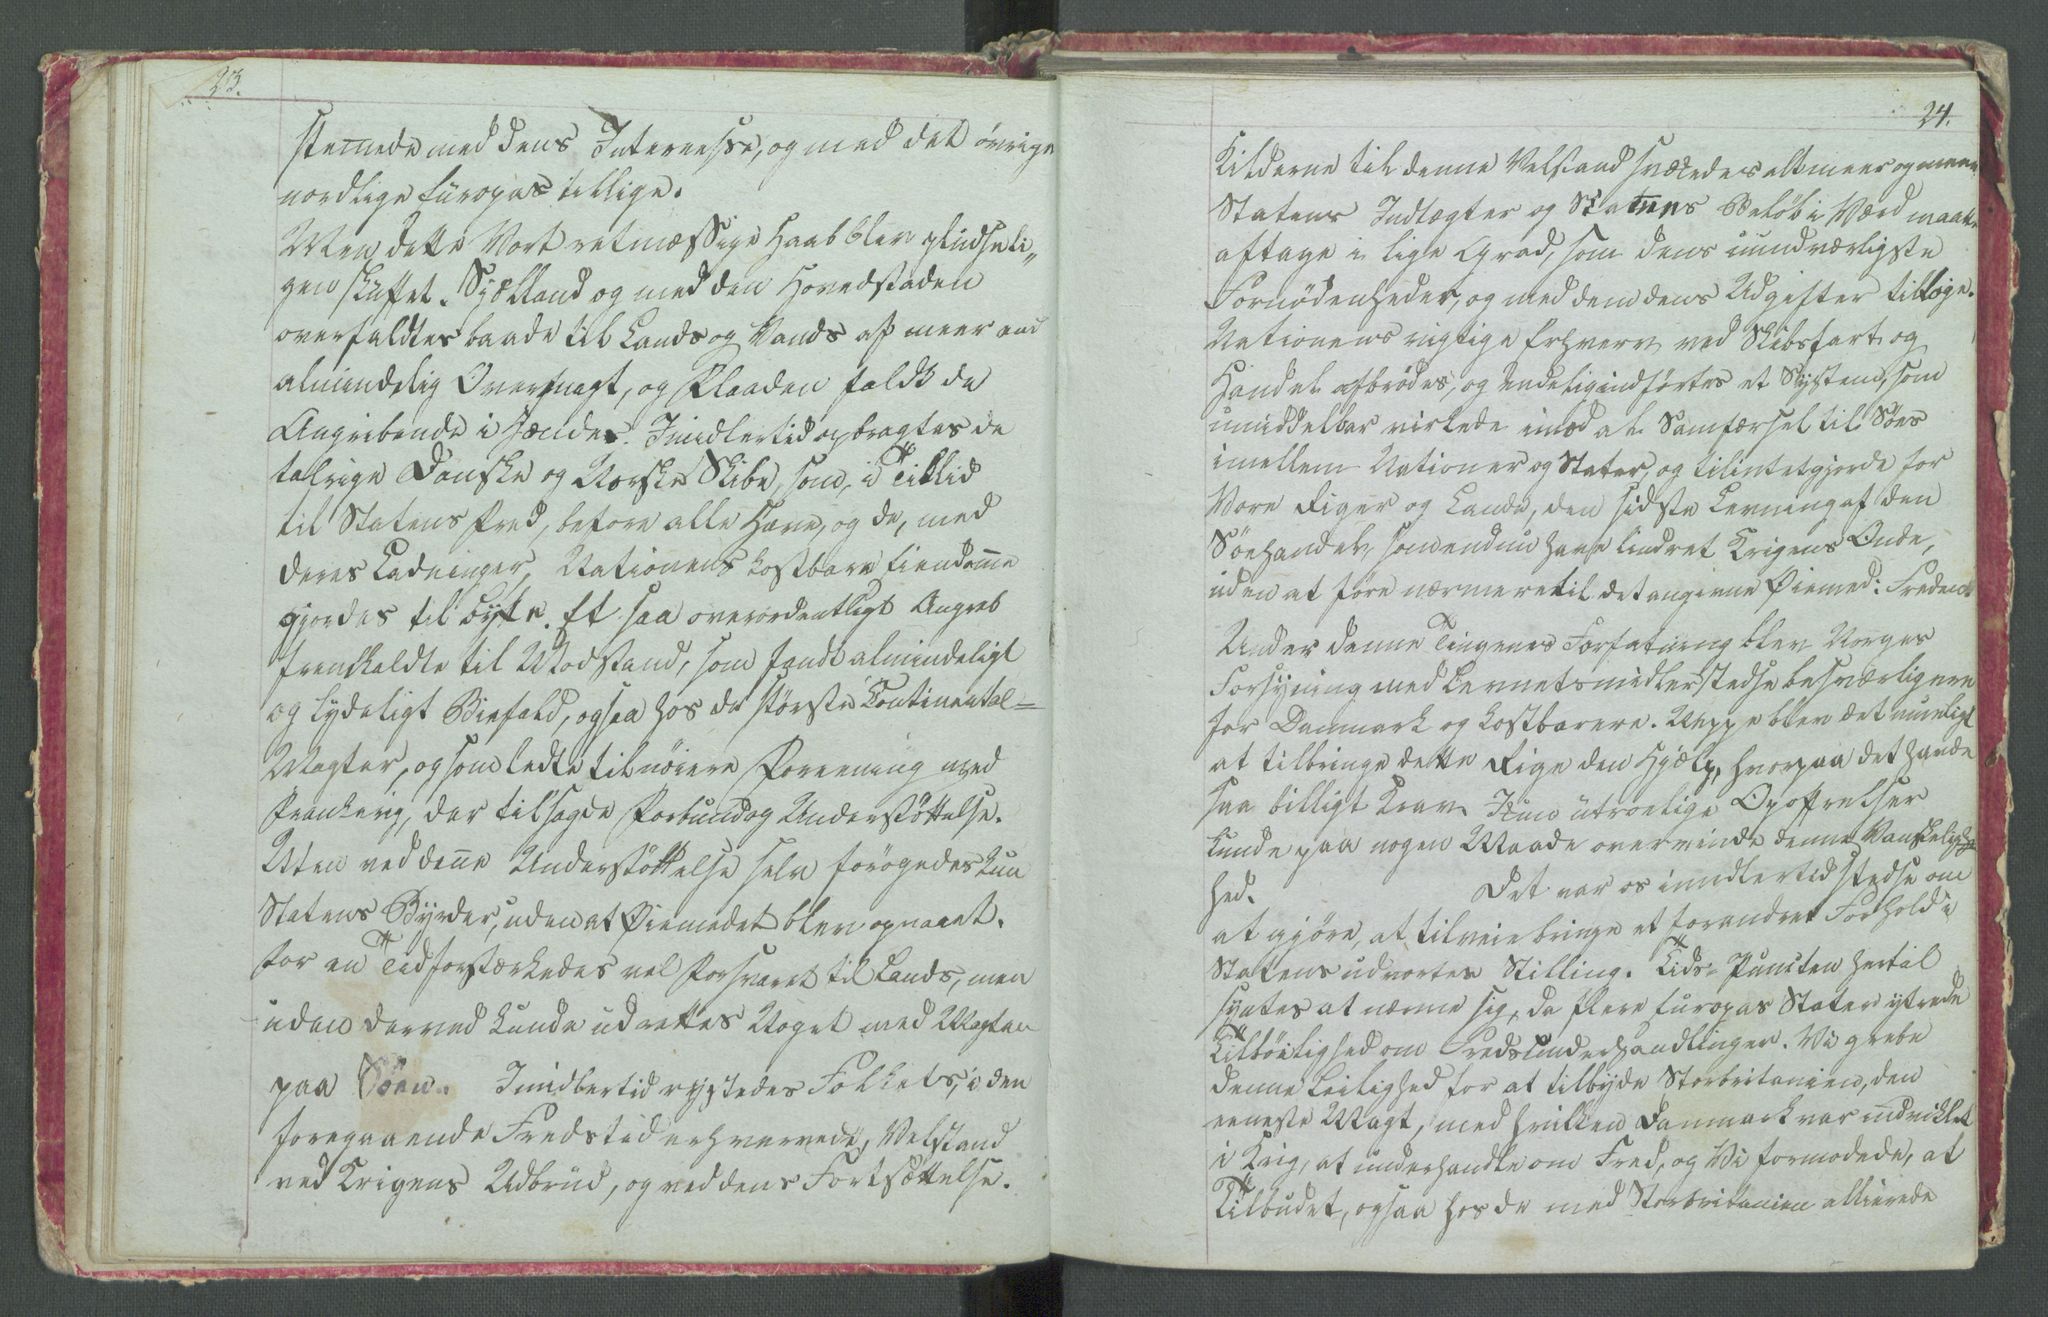 23.
stemmede med dens Interesse, og med det övrige
nordlige Europas tillige.
Men dette Vort retmæssige Haab blev pludseli„
gen skuffet. Sjælland og med den Hovedstaden
overfaldtes baade til Lands og Vands af meer end
almindelig Overmagt, og Flaaden faldt de
Angribende i Hænder. Imidlertid opbragtes de
talrige Danske og Norske Skibe, som, i Tillid
til Statens Fred, before alle Have, og de, med
deres Ladninger, Nationens kostbare Eiendomme
gjordes til Bytte. Et saa overordentligt Angreb
fremkaldte til Modstand, som fandt almindeligt
og lydeligt Biefald, ogsaa hos de störste Continental=
Magter, og som ledte til nöiere Foreening med
Frankerig, der tilsagde Forbund og Understöttelse.
Men ved denne Understöttelse selv forögedes kun
Statens Byrder, uden at Øiemedet blev opnaaet.
For en Tid forstærkedes vel Forsvaret til Lands, men
uden derved kunde udrettes Noget med Magten
paa Söen. Imidlertid rystedes Folkets, i den
foregaaende Fredstid erhvervede, Velstand
ved Krigens Udbrud, og ved dens Fortsættelse.
24.
Kilderne til denne Velstand svækedes alt meer og meere
Statens Indtægter og Statens Belöb i Værd maatte
aftage i lige Grad, som dens uundværligste
Fornödenheder, og med dem dens Udgifter tiltoge.
Nationens vigtige Erhverv ved Skibsfart og
Handel afbrödes, og endelig indförtes et System, som
umiddelbar virkede imod al Samfærsel til Söes
imellem Nationer og Stater, og tilintetgjorde for
Vore Riger og Lande, den sidste Levning af den
Söehandel, som endnu havde lindret Krigens Onde,
uden at före nærmere til det angivne Øiemed: Freden.
Under denne Tingenes Forfatning blev Norges
Forsyning med Levnetsmidler stedse besværligere
for Danmark og kostbarere. Neppe blev det mueligt
at tilbringe dette Rige den Hjælp, hvorpaa det havde
saa billigt Krav. Kun utroelige Opofrelser
kunde paa nogen Maade overvinde denne Vanskelig=
hed. Det var os imidlertid stedse om
at gjöre, at tilveiebringe et forandret Forhold i
Statens udvortes Stilling. Tids-Puncten hertil
syntes at nærme sig, da flere Europas Stater ytrede
Tilböielighed om Fredsunderhandlinger. Vi grebe
denne Leilighed for at tilbyde Storbritanien, den
eeneste Magt, med hvilken Danmark var indviklet
i Krig, at underhandle om Fred, og Vi formodede, at
Tilbudet, ogsaa hos de med Storbritanien allierede